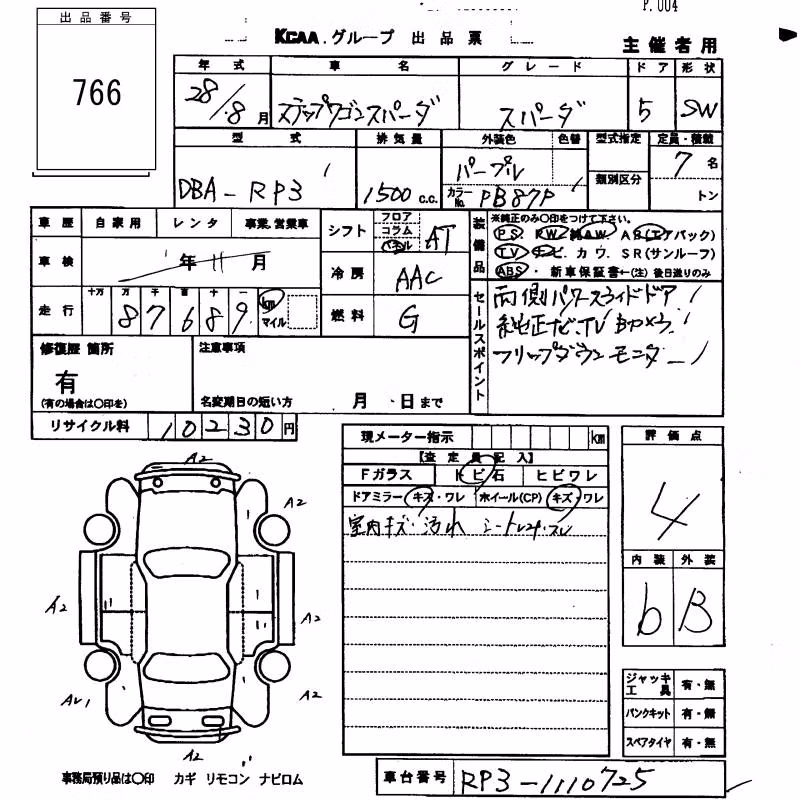 P.004
出品番号
766
KCAA.グループ 出品票
主催者用
年式 車名 グレード ドア 形状
28/8月 ステップワゴンスパーダ スパーダ 5 SW
型式 排気量 外装色 色替 型式指定 定員・積載
DBA-RP3 1500c.c. パープル 7名
カラーNo. PB87P 類別区分 トン
車歴 自家用 レンタ 事業.営業車
車検 年 11月
走行 十万 万 千 百 十 一
87689 km マイル
シフト フロア コラム パネル AT
冷房 AAC
燃料 G
装備品 ※純正のみ○印をつけて下さい。
PS. PW. 純AW. AB(エアパック)
TV ナビ. カワ. SR(サンルーフ)
ABS・新車保証書←(注)後日送りのみ
セールスポイント
両側パワースライドドア
純正ナビ.TV Bカメラ
フリップダウンモニター
修復歴 箇所
有
(有の場合は○印を)
注意事項
名変期日の短い方 月・日まで
リサイクル料 10230円
現メーター指示 km
【査定員記入】
Fガラス トビ石 ヒビワレ
ドアミラー キズ・ワレ ホイール(CP) キズ・ワレ
室内キズ・汚れ
評価点
4
内装 外装
b B
ジャッキ 工具 有・無
パンクキット 有・無
スペアタイヤ 有・無
A2
A2
A2
A2
A2
A2
事務局預り品は○印 カギ リモコン ナビロム
車台番号 RP3-1110725